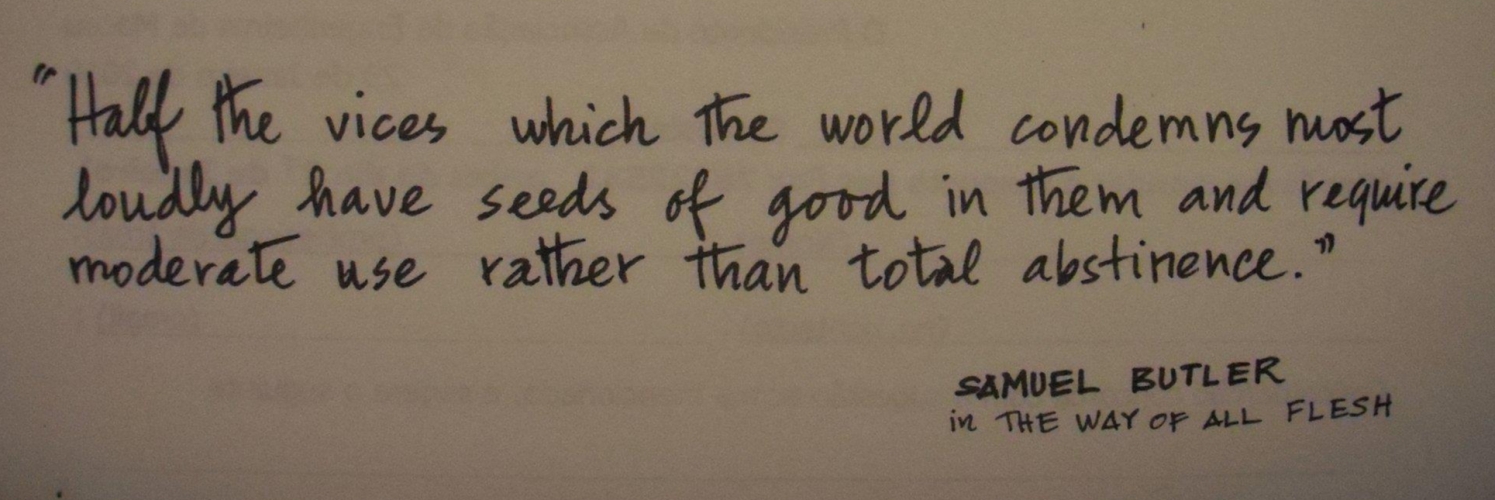 "Half the vices which the world condemns most
loudly have seeds of good in them and require
moderate use rather than total abstinence."
SAMUEL BUTLER
in THE WAY OF ALL FLESH